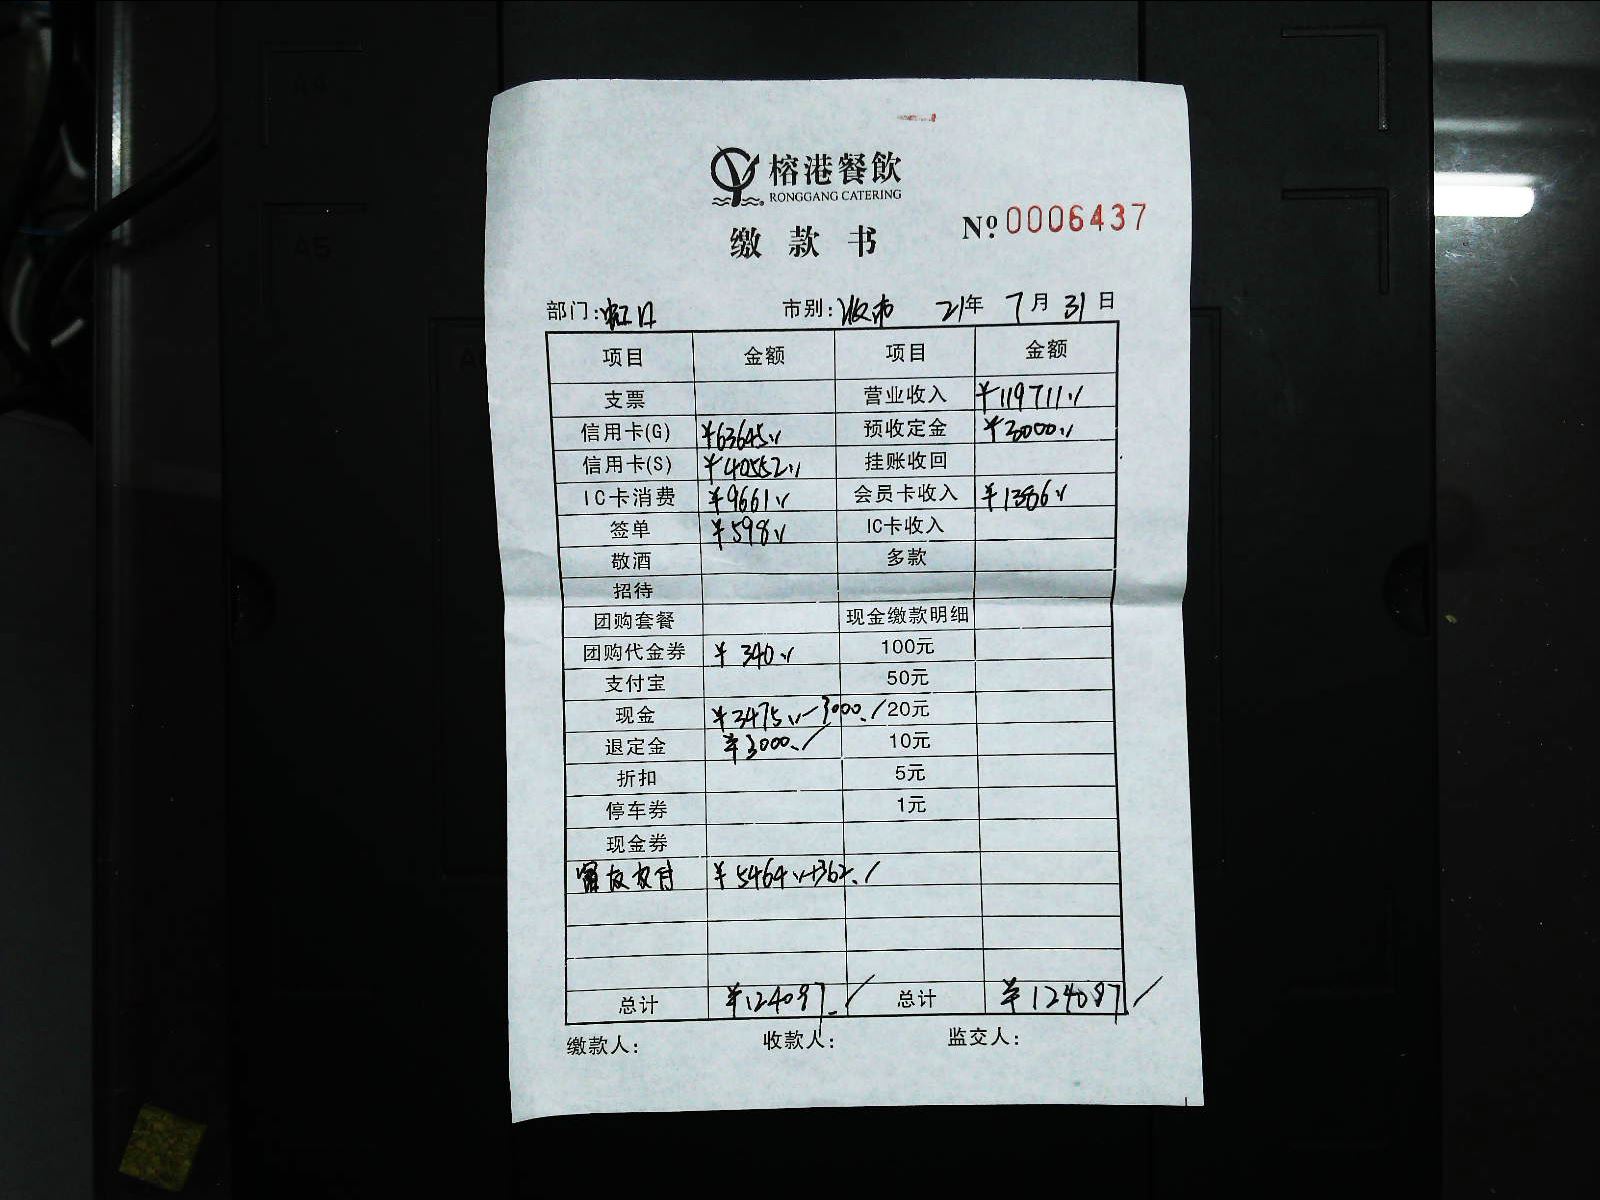 榕港餐飲
RONGGANG CATERING
缴款书
Nº 0006437
部门: 虹口 市别: 市 21年 7月 31日
项目 金额 项目 金额
支票 营业收入 ¥119711
信用卡(G) ¥63645 预收定金 ¥3000
信用卡(S) ¥40552 挂账收回
IC卡消费 ¥9661 会员卡收入 ¥1386
签单 ¥598 IC卡收入
敬酒 多款
招待
团购套餐 现金缴款明细
团购代金券 ¥340 100元
支付宝 50元
现金 ¥3475 -3000 20元
退定金 ¥3000 10元
折扣 5元
停车券 1元
现金券
¥5464 +362
总计 ¥124097 总计 ¥124097
缴款人: 收款人: 监交人: